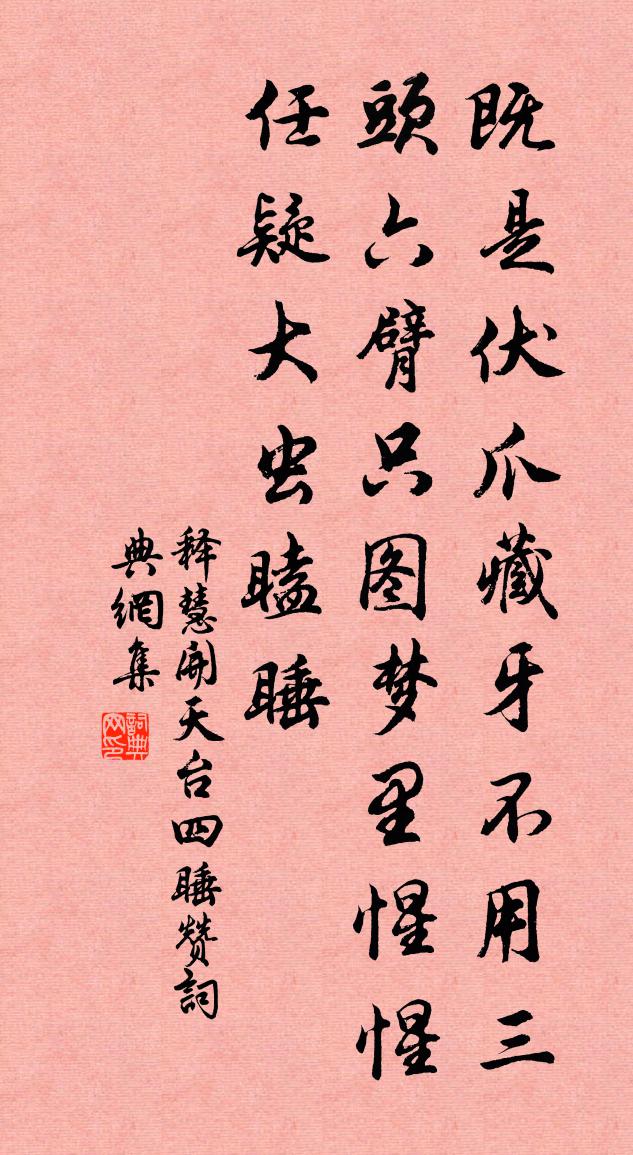 既是伏爪藏牙不用三
頭六臂只图梦里惺惺
任疑大虫瞌睡
释慧開天台四睡赞詞
典網集
詞典网印